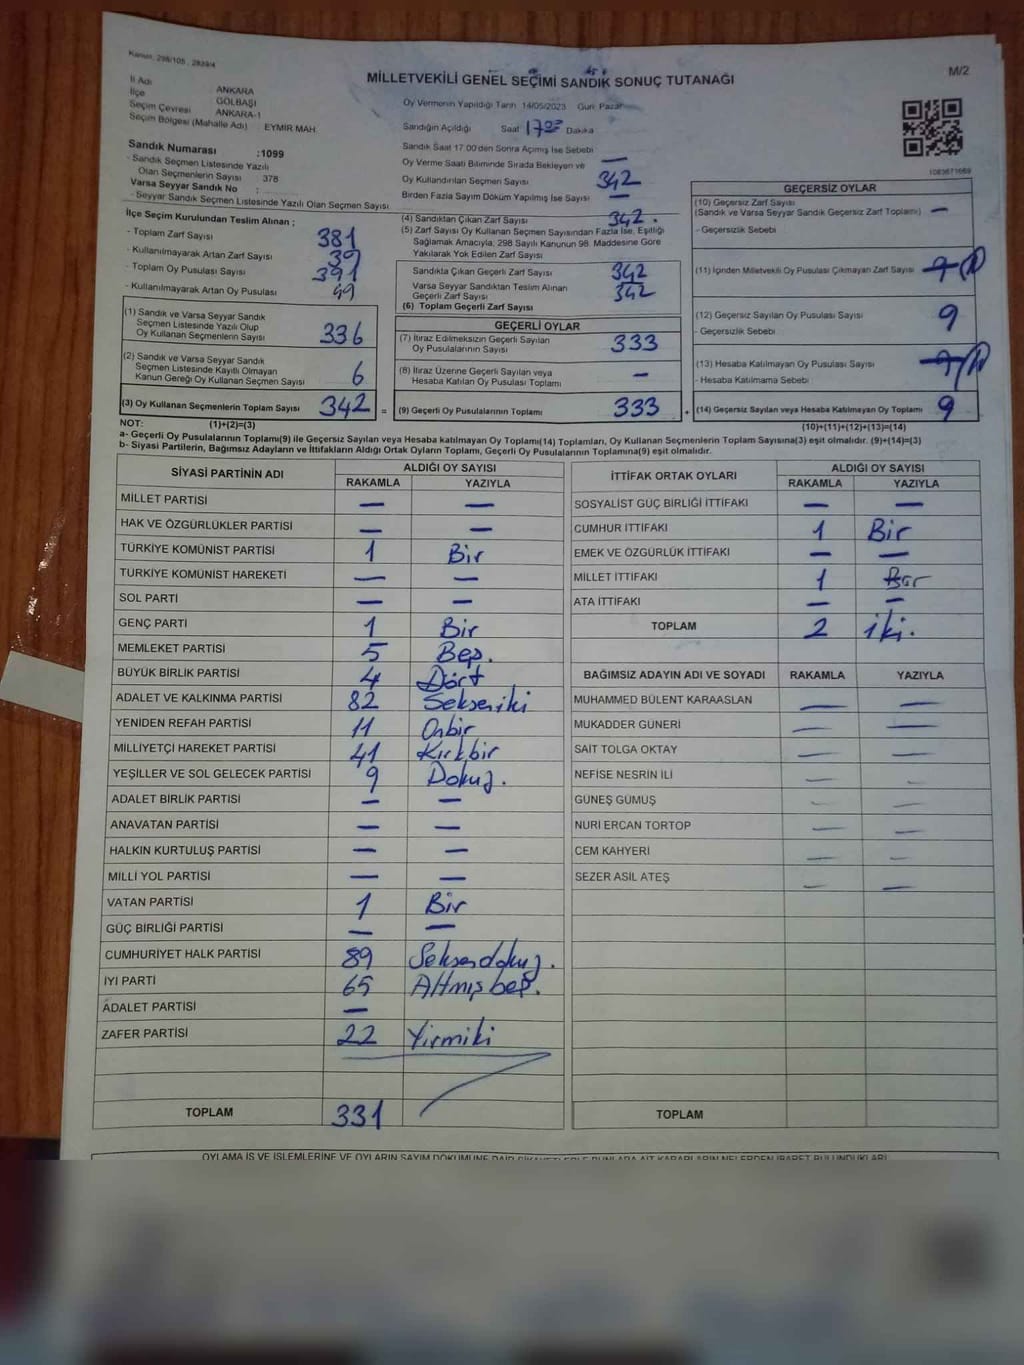 Kanun, 298/105, 2839/4
MİLLETVEKİLİ GENEL SEÇİMİ SANDIK SONUÇ TUTANAĞI
M/2
İl Adı ANKARA
İlçe GÖLBAŞI
Seçim Çevresi ANKARA-1
Seçim Bölgesi (Mahalle Adı) EYMİR MAH.
Sandık Numarası :1099
- Sandık Seçmen Listesinde Yazılı
Olan Seçmenlerin Sayısı 378
Varsa Seyyar Sandık No :
- Seyyar Sandık Listesinde Yazılı Olan Seçmen Sayısı
İlçe Seçim Kurulundan Teslim Alınan ;
- Toplam Zarf Sayısı 381
- Kullanılmayarak Artan Zarf Sayısı 39
- Toplam Oy Pusulası Sayısı 391
- Kullanılmayarak Artan Oy Pusulası 49
(1) Sandık ve Varsa Seyyar Sandık
Seçmen Listesinde Yazılı Olup
Oy Kullanan Seçmenlerin Sayısı 336
(2) Sandık ve Varsa Seyyar Sandık
Seçmen Listesinde Kayıtlı Olmayan
Kanun Gereği Oy Kullanan Seçmen Sayısı 6
(3) Oy Kullanan Seçmenlerin Toplam Sayısı 342 =
Oy Vermenin Yapıldığı Tarih 14/05/2023 Gün: Pazar
Sandığın Açıldığı Saat 17 Dakika
Sandık Saat 17.00'den Sonra Açımış İse Sebebi
Oy Verme Saati Bitiminde Sırada Bekleyen ve —
Oy Kullandırılan Seçmen Sayısı 342
Birden Fazla Sayım Döküm Yapılmış İse Sayısı —
(4) Sandıktan Çıkan Zarf Sayısı 342.
(5) Zarf Sayısı Oy Kullanan Seçmen Sayısından Fazla İse, Eşitliği
Sağlamak Amacıyla, 298 Sayılı Kanunun 98. Maddesine Göre
Yakılarak Yok Edilen Zarf Sayısı
Sandıkta Çıkan Geçerli Zarf Sayısı 342
Varsa Seyyar Sandıktan Teslim Alınan
Geçerli Zarf Sayısı 342
(6) Toplam Geçerli Zarf Sayısı
GEÇERLİ OYLAR
(7) İtiraz Edilmeksizin Geçerli Sayılan
Oy Pusulalarının Sayısı 333
(8) İtiraz Üzerine Geçerli Sayılan veya
Hesaba Katılan Oy Pusulası Toplamı —
(9) Geçerli Oy Pusulalarının Toplamı 333 +
1083671669
GEÇERSİZ OYLAR
(10) Geçersiz Zarf Sayısı
(Sandık ve Varsa Seyyar Sandık Geçersiz Zarf Toplamı) —
- Geçersizlik Sebebi
(11) İçinden Milletvekili Oy Pusulası Çıkmayan Zarf Sayısı
(12) Geçersiz Sayılan Oy Pusulası Sayısı 9
- Geçersizlik Sebebi
(13) Hesaba Katılmayan Oy Pusulası Sayısı
- Hesaba Katılmama Sebebi
(14) Geçersiz Sayılan veya Hesaba Katılmayan Oy Toplamı 9
NOT: (1)+(2)=(3) (10)+(11)+(12)+(13)=(14)
a- Geçerli Oy Pusulalarının Toplamı(9) ile Geçersiz Sayılan veya Hesaba katılmayan Oy Toplamı(14) Toplamları, Oy Kullanan Seçmenlerin Toplam Sayısına(3) eşit olmalıdır. (9)+(14)=(3)
b- Siyasi Partilerin, Bağımsız Adayların ve İttifakların Aldığı Ortak Oyların Toplamı, Geçerli Oy Pusulalarının Toplamına(9) eşit olmalıdır.
SİYASİ PARTİNİN ADI ALDIĞI OY SAYISI
RAKAMLA YAZIYLA
MİLLET PARTİSİ — —
HAK VE ÖZGÜRLÜKLER PARTİSİ — —
TÜRKİYE KOMÜNİST PARTİSİ 1 Bir
TÜRKİYE KOMÜNİST HAREKETİ — —
SOL PARTİ — —
GENÇ PARTİ 1 Bir
MEMLEKET PARTİSİ 5 Beş.
BÜYÜK BİRLİK PARTİSİ 4 Dört
ADALET VE KALKINMA PARTİSİ 82 Sekseniki
YENİDEN REFAH PARTİSİ 11 Onbir
MİLLİYETÇİ HAREKET PARTİSİ 41 Kırkbir
YEŞİLLER VE SOL GELECEK PARTİSİ 9 Dokuz.
ADALET BİRLİK PARTİSİ — —
ANAVATAN PARTİSİ — —
HALKIN KURTULUŞ PARTİSİ — —
MİLLİ YOL PARTİSİ — —
VATAN PARTİSİ 1 Bir
GÜÇ BİRLİĞİ PARTİSİ — —
CUMHURİYET HALK PARTİSİ 89 Seksendokuz.
İYİ PARTİ 65 Altmışbeş.
ADALET PARTİSİ —
ZAFER PARTİSİ 22 Yirmiki
TOPLAM 331
İTTİFAK ORTAK OYLARI ALDIĞI OY SAYISI
RAKAMLA YAZIYLA
SOSYALİST GÜÇ BİRLİĞİ İTTİFAKI — —
CUMHUR İTTİFAKI 1 Bir
EMEK VE ÖZGÜRLÜK İTTİFAKI — —
MİLLET İTTİFAKI 1 Bir
ATA İTTİFAKI — —
TOPLAM 2 iki.
BAĞIMSIZ ADAYIN ADI VE SOYADI RAKAMLA YAZIYLA
MUHAMMED BÜLENT KARAASLAN — —
MUKADDER GÜNERİ — —
SAİT TOLGA OKTAY — —
NEFİSE NESRİN İLİ — —
GÜNEŞ GÜMÜŞ — —
NURİ ERCAN TORTOP — —
CEM KAHYERİ — —
SEZER ASİL ATEŞ — —
TOPLAM